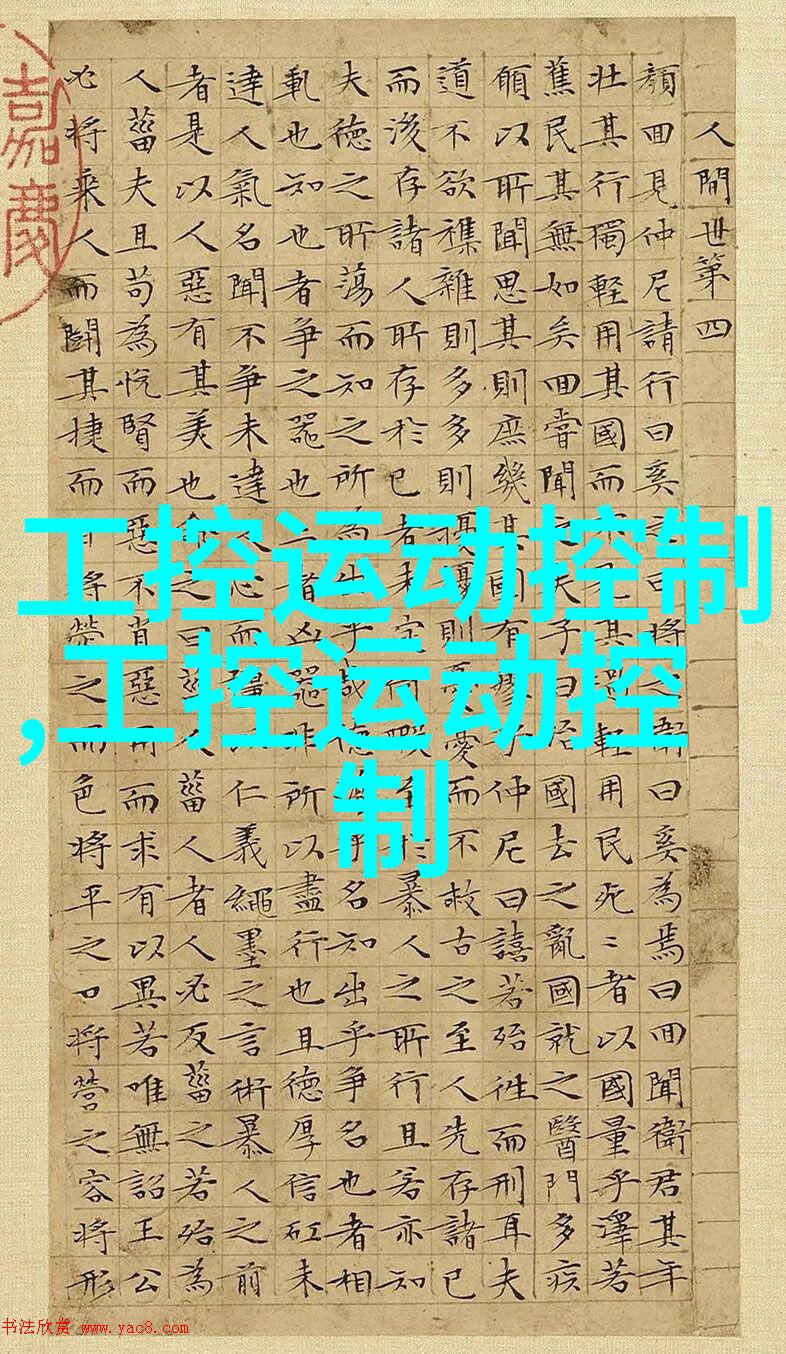 人間世第四
顏回見仲尼請行曰奚之曰將之衛曰奚為焉曰回聞衛君其年
壯其行獨輕用其國而不見其過輕用民死〻者以國量乎澤若
蕉民其無如矣回嘗聞之夫子曰治國去之亂國就之醫門多疾
願以所聞思其則庶幾其國有瘳乎仲尼曰譆若殆往而刑耳夫
道不欲襍雜則多多則擾擾則憂憂而不救古之至人先存諸已
而後存諸人所存於已者未定何暇至於暴人之所行且若亦知
夫德之所蕩而知之所為出乎哉德蕩乎名知出乎爭名也者相
軋也知也者爭之器也二者凶器非所以盡行也且德厚信矼未
達人氣名聞不爭未達人心而彊以仁義繩墨之言術暴人之前
者是以人惡有其美也命之曰菑人菑人者人必反菑之若殆為
人菑夫且苟為悅賢而惡不肖惡用而求有以異若唯無詔王公
必將乘人而鬭其捷而目將熒之而色將平之口將營之容將形
嘉慶
工控运动控制
,工控运动控
制
书法欣赏 www.yac8.com